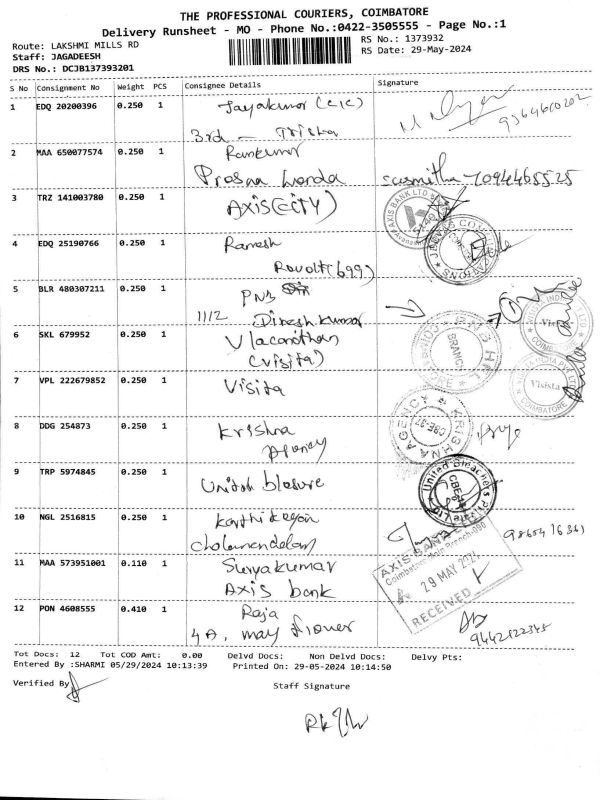 THE PROFESSIONAL COURIERS, COIMBATORE
Delivery Runsheet - MO - Phone No.:0422-3505555 - Page No.:1
Route: LAKSHMI MILLS RD
RS No.: 1373932
Staff: JAGADEESH
RS Date: 29-May-2024
DRS No.: DCJB137393201
S No Consignment No Weight PCS Consignee Details Signature
1 EDQ 20200396 0.250 1 Jayakumar (CIC)
3rd - Trisha
2 MAA 650077574 0.250 1 Ramkumar
Susmitha 7094465525
3 TRZ 141003780 0.250 1 AXIS (CITY)
AXIS BANK LTD
4 EDQ 25190766 0.250 1 Ramesh
Revolt (699)
5 BLR 480307211 0.250 1 PNB
1112 Dinesh kumar
6 SKL 679952 0.250 1
(Visita)
BRANCH
Visista
COIMBATORE
7 VPL 222679852 0.250 1 Visita
Visista
COIMBATORE
8 DDG 254873 0.250 1 Krishna
KRISHNA AGENCY
CBE-37
9 TRP 5974845 0.250 1
United Bleachers Private Ltd
10 NGL 2516815 0.250 1 Karthikeyan
11 MAA 573951001 0.110 1 Suryakumar
Axis bank
AXIS BANK
29 MAY 2024
RECEIVED
12 PON 4608555 0.410 1 Raja
4A, may flower
Tot Docs: 12 Tot COD Amt: 0.00 Delvd Docs: Non Delvd Docs: Delvy Pts:
Entered By :SHARMI 05/29/2024 10:13:39 Printed On: 29-05-2024 10:14:50
Verified By
Staff Signature